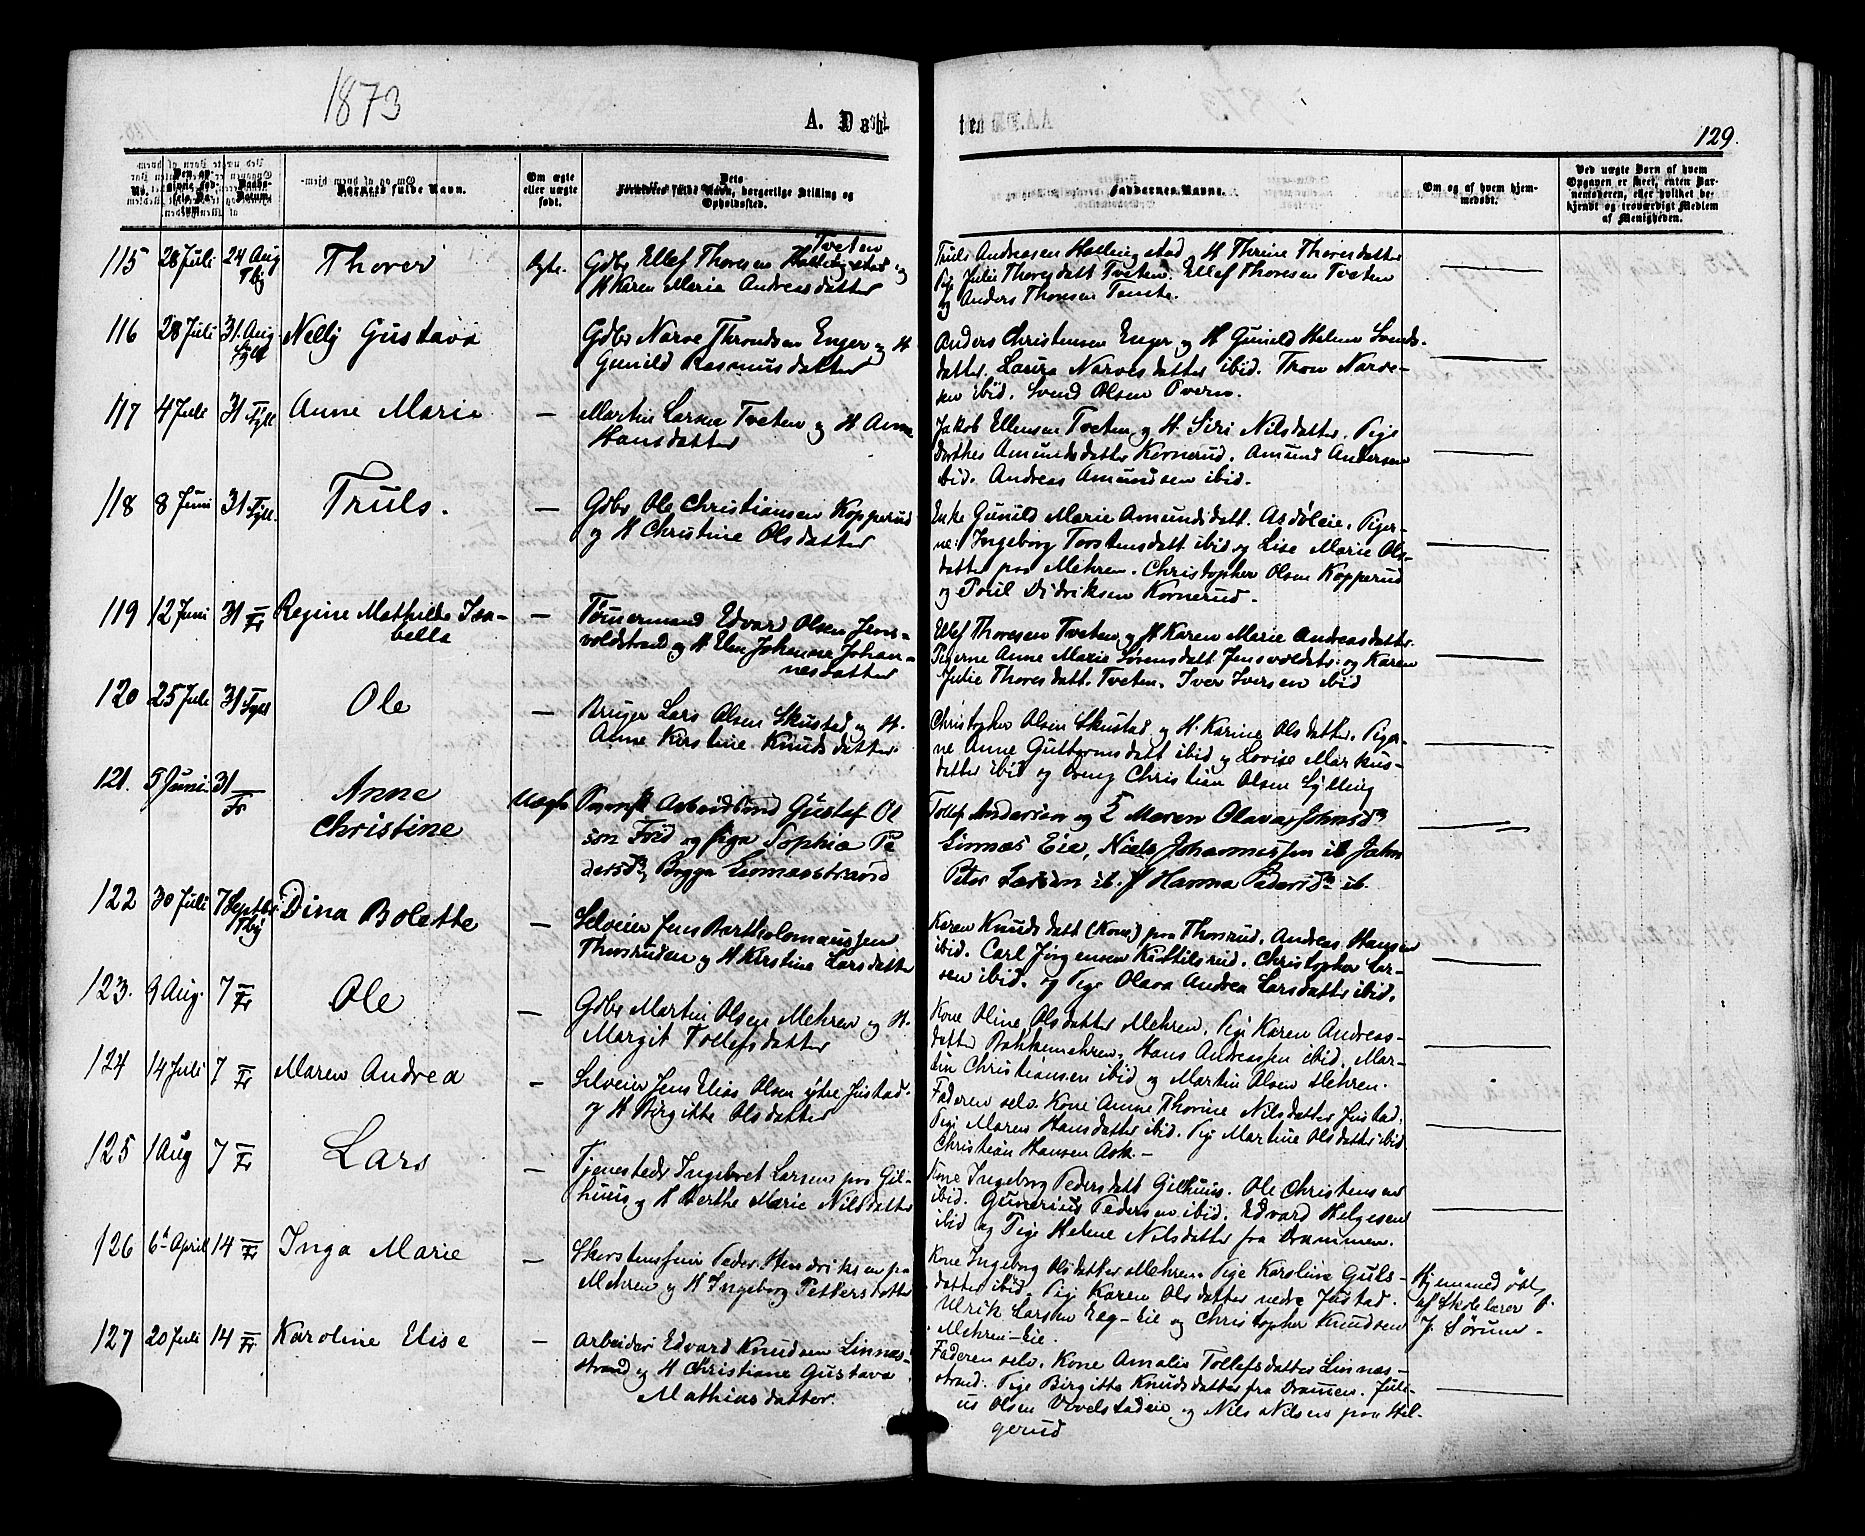 1873
A. Dah
129.
No.
Barnets fulde Navn.
Om ægte eller uægte født.
borgerlige Stilling og Opholdssted.
Faddernes Navne.
Om og af hvem hjemmedøbt.
Ved uægte Børn af hvem Opgaven er skeet, enten Barnemoderen, eller hvilket bekjendt og troværdigt Medlem af Menigheden.
115 28 Juli 24 Aug Thorer Ægte. Gdbr Ellef Thoresen Tveten og
H Karen Marie Andreasdatter
Truls Andreasen Hallingstad og H Therine Thoresdatter
Pige Julie Thoresdatt Tveten. Ellef Thoresen Tveten
og Anders Thoresen
116 28 Juli 31. Aug Nelly Gustava Gdbr Narve Throndsen Enger og H
Gunild Rasmusdatter
Anders Christensen Enger og H Gunild Helene Svends-
datter. Laura Narvesdatter ibid. Tron Narve-
sen ibid. Svend Olsen
117 4 Juli 31 Anne Marie — Martin Larsen Tveten og H Anne
Hansdatter
Jakob Ellensen Tveten og H. Siri Nilsdatter. Pige
Dorthea Amundsdatter Kornerud. Amund Andersen
ibid. Andreas Amundsen ibid.
118 8 Juni 31 Truls. — Gdbr Ole Christiansen Kopperud
og H Christine Olsdatter
Enke Gunild Marie Amundsdatt. Asdøleie. Piger-
ne: Ingeborg Torstensdatt ibid og Lise Marie Ols-
datter paa Mehren. Christopher Olsen Kopperud
og Poul Didriksen Kornerud.
119 12 Juni 31 Fr Regine Mathilde Isa-
bella — Tømermand Edvard Olsen Jens-
voldstrand og H Elen Johanne Johan-
nesdatter
Ellef Thoresen Tveten og H Karen Marie Andreasdatter.
Pigerne Anne Marie Sørensdatt Jensvoldstr: og Karen
Julie Thoresdatt. Tveten. Iver Iversen ibid
120 25 Juli 31 Ole — Bruger Lars Olsen Skustad og H.
Anne Kirstine Knudsdatter
Christopher Olsen Skustad og H. Karine Olsdatter. Piger-
ne Anne Guttormsdatt ibid og Lovise Markus-
datter ibid og Ung Christian Olsen Gylling
121. 5 Juni 31 Fr Anne
Christine Uægte Svensk Arbeidsmd Gustaf Ol
son Frid og pige Sophia Pe
dersdr, Bygga Linnæsstrand
Tollef Andersen og Maren Olava Johnsdr
Linnæs Eie, Niels Johannessen ib John
Peter Larsen ib. P Hanna Pedersdr ib.
122 30 Juli 7 Septbr Dina Bolette — Selveier Jens Bartholomæussen
Thorsruden og H Kirstine Larsdatter
Karen Knudsdatt (Kone) paa Thorsrud. Andreas Hansen
ibid. Carl Jørgensen Kittilsrud. Christopher Lar-
sen ibid. og Pige Olava Andrea Larsdatter ibid.
123. 9 Aug. 7 Fr Ole — Gdbr Martin Olsen Mehren og H.
Margit Tollefsdatter
Kone Oline Olsdatter Mehren. Pige Karen Andreas-
datter Bakkemehren. Hans Andreassen ibid. Mar-
tin Christiansen ibid og Martin Olsen Mehren.
124 14 Juli 7 Fr Maren Andrea — Selveier Jens Elias Olsen ytre Justad
og H Birgitte Olsdatter
Faderen selv. Kone Anne Thorine Nilsdatter Justad.
Pige Maren Hansdatter ibid. Pige Martine Olsdatter ibid
Christian Hansen Ask.—
125 1 Aug 7 Fr Lars — Tjenestedr Ingebret Larsen paa Gil-
huus og H Berthe Marie Nilsdatter
Kone Ingeborg Pedersdatt Gilhuus. Ole Christensen
ibid. Gunerius Pedersen ibid. Edvard Helgesen
ibid og Pige Helene Nilsdatter fra Drammen.
126 6 April 14 Fr Inga Marie — Skorstensfeier Peder Hendriksen pa
Mehren og H Ingeborg Pettersdatter
Kone Ingeborg Olsdatter Mehren. Pige Karoline Guls-
datter ibid. Pige Karen Olsdatter nedre Justad.
Ulrik Larsen Eeg-Eie og Christopher Knudsen
Mehren-Eie.
Hjemmedøbt
af Skolelærer P.
J. Sørum.
127 20 Juli 14 Fr Karoline Elise — Arbeider Edvard Knudsen Linnæs-
strand og H Christiane Gustava
Mathiasdatter.
Faderen selv. Kone Amalie Tollefsdatter Linnæs-
strand. Pige Birgitte Knudsdatter fra Dramen. Juli-
us Olsen og Nils Nilsen paa Hel-
gerud